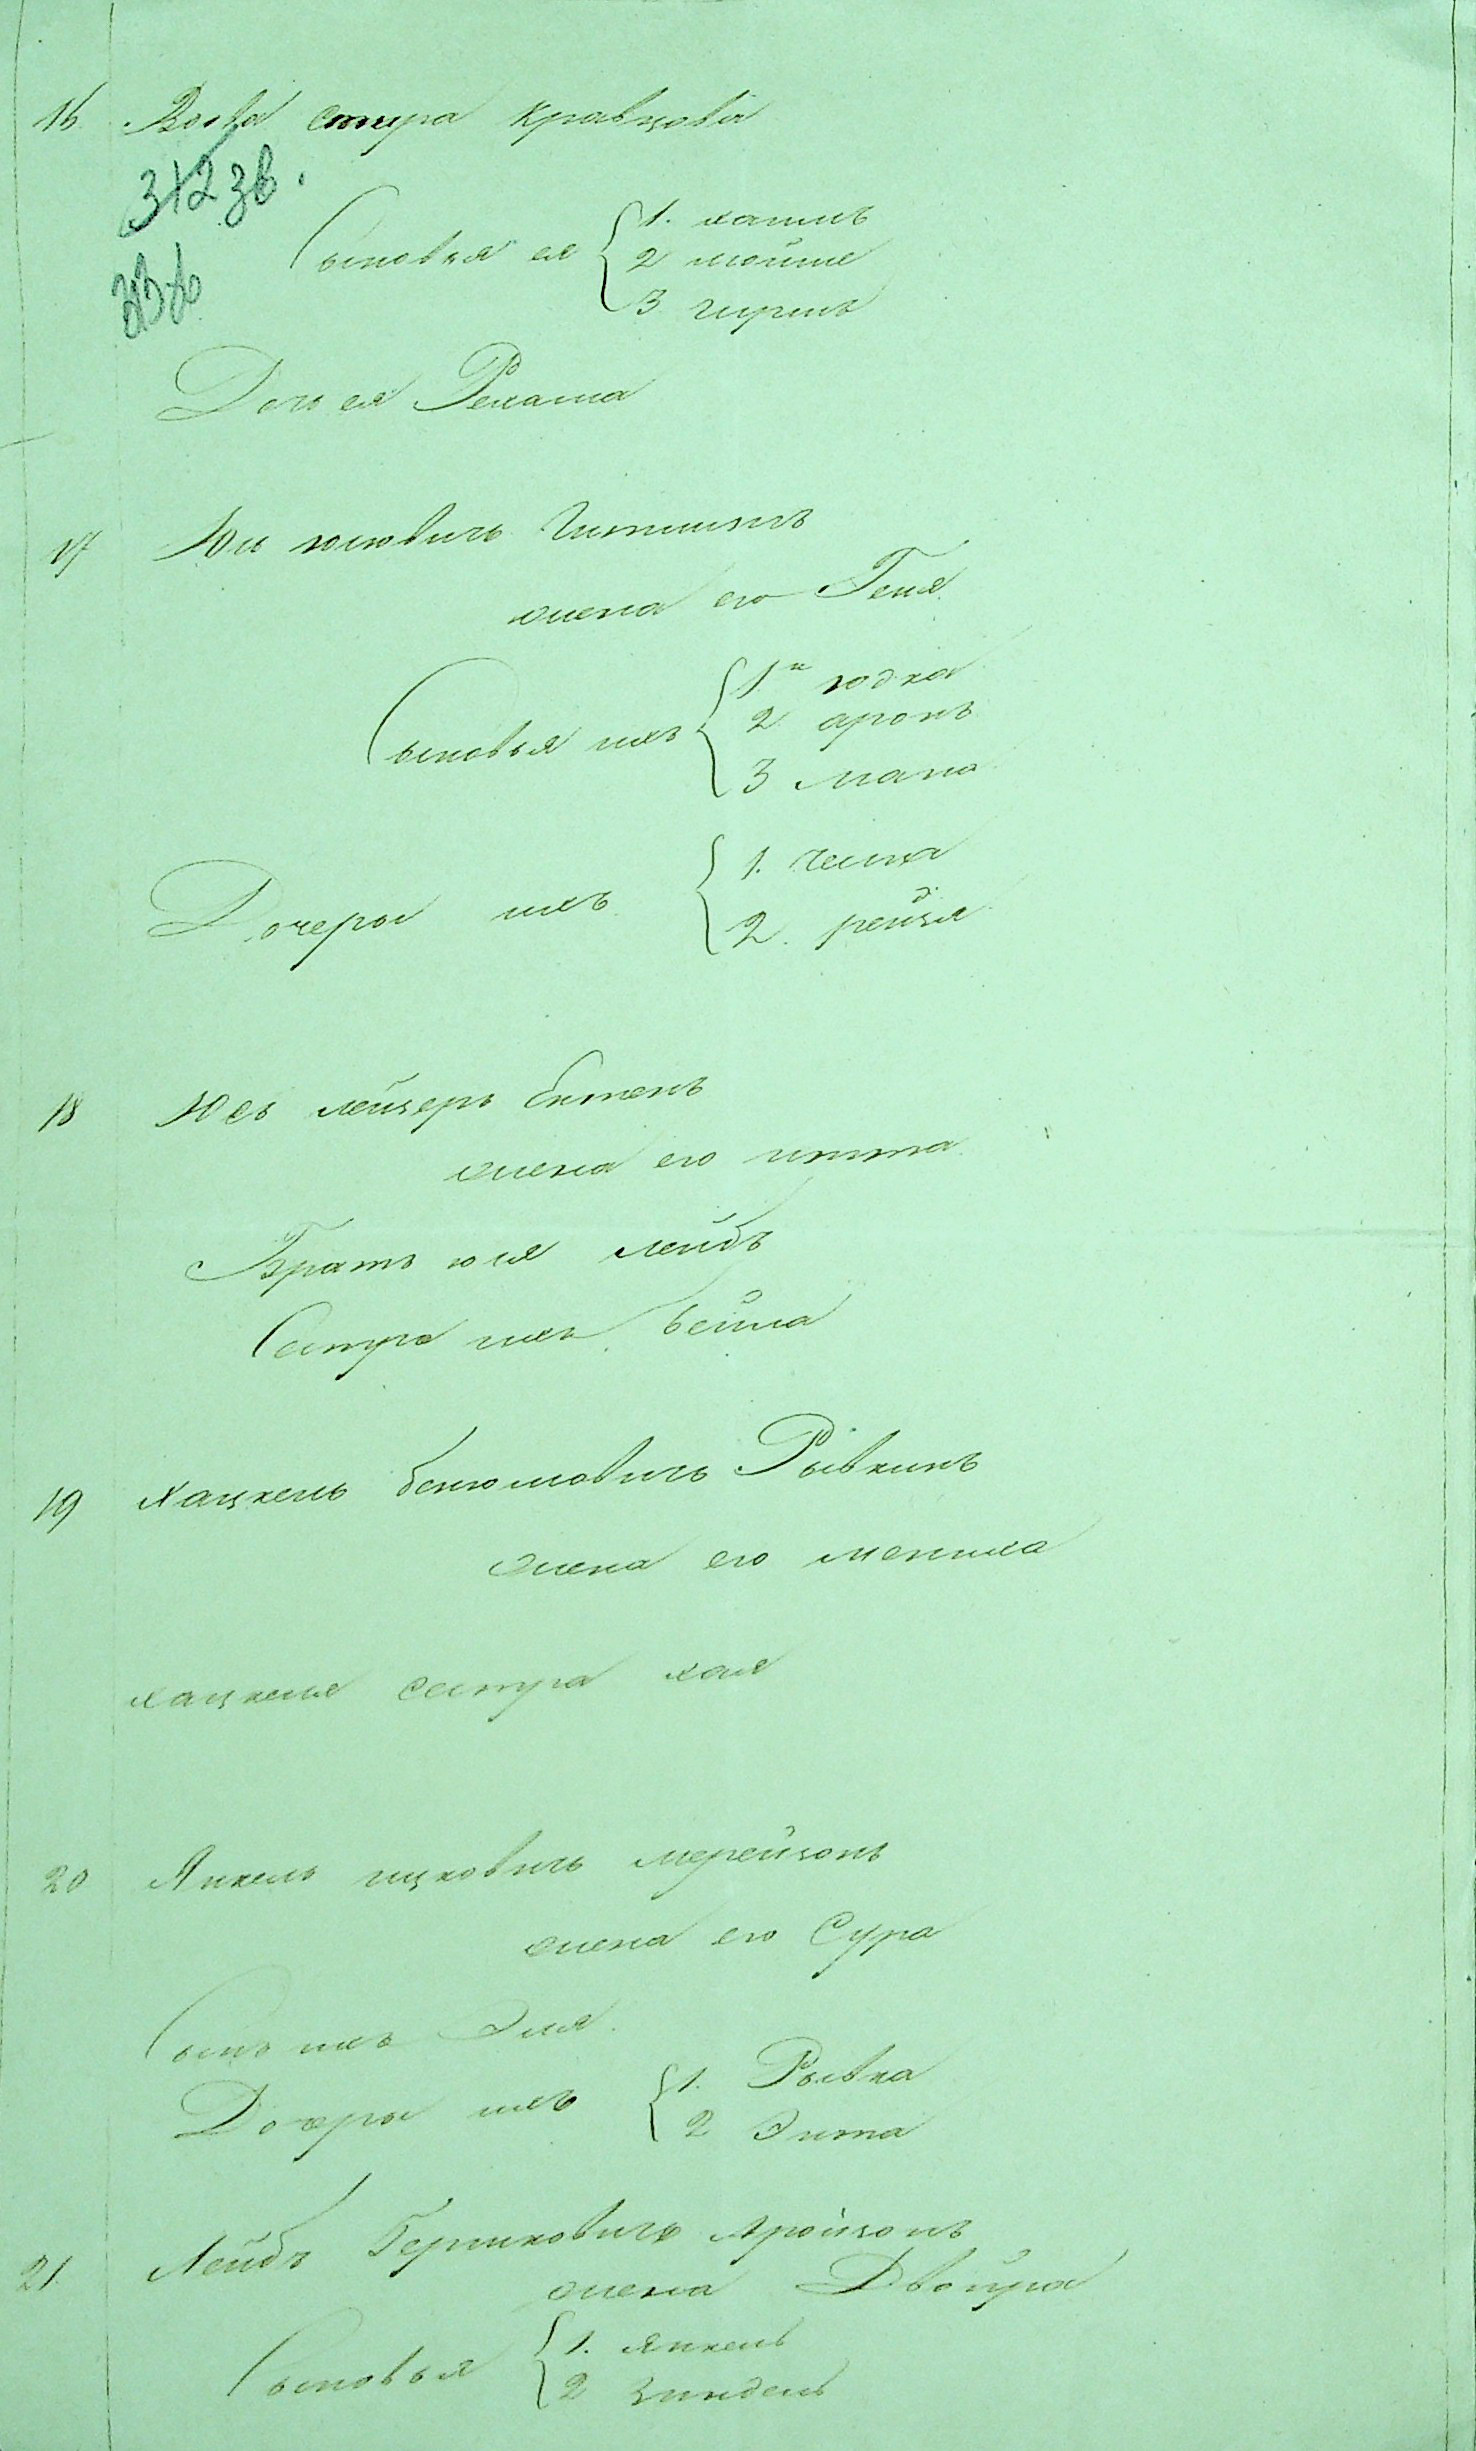 16 Вдова Стира Кравцова
312 зв.
Сыновья ея 1. хаимъ
2 мойше
3 гиршъ
Дочь ея Рехама
17 Юль юлювичъ
жена его Геня
Сыновья ихъ 1й юдка
2 аронъ
3 мана
Дочеры ихъ 1.
2. рейзя
18 лейзеръ
жена его итта
Братъ юля лейбъ
Сестра ихъ бейла
19 Хацкель бенюмовичъ Рывкинъ
жена его менуха
хацкеля сестра хая
20 Янкель ицковичъ мерейзонъ
жена его Сура
Сынъ ихъ Эля
Дочеры ихъ 1. Рывка
2 Энта
21 Лейбъ Берковичъ Аройзонъ
жена Двойра
Сыновья 1. янкель
2 зиндель